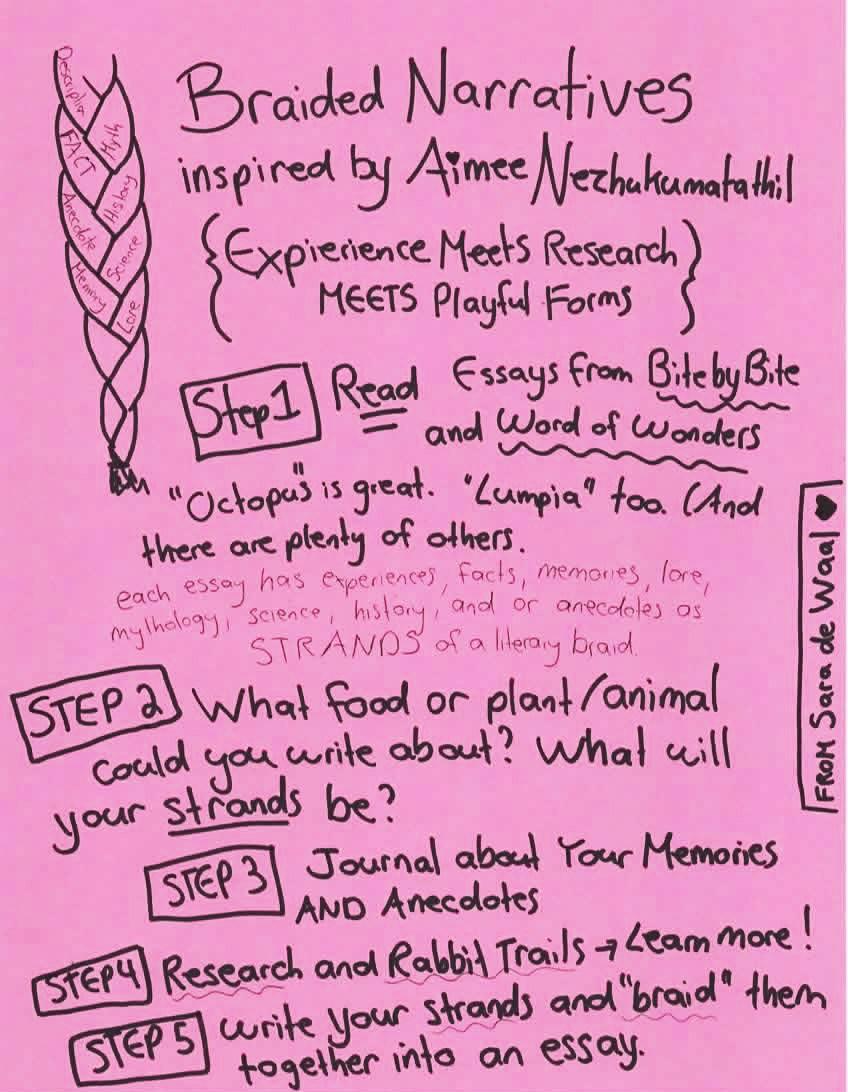 Braided Narratives
inspired by Aimee Nezhukumatathil
{Expierience Meets Research
MEETS Playful Forms}
Description
Myth
FACT
History
Anecdote
Science
Memory
Lore
Step 1 Read Essays from Bite by Bite
and Word of Wonders
"Octopus" is great. "Lumpia" too. (And
there are plenty of others.
each essay has experiences, facts, memories, lore,
mythology, science, history, and or anecdotes as
STRANDS of a literary braid.
STEP 2 What food or plant/animal
could you write about? What will
your strands be?
STEP 3 Journal about Your Memories
AND Anecdotes
STEP 4 Research and Rabbit Trails → Learn more!
STEP 5 Write your strands and "braid" them
together into an essay.
FROM Sara de Waal ♥